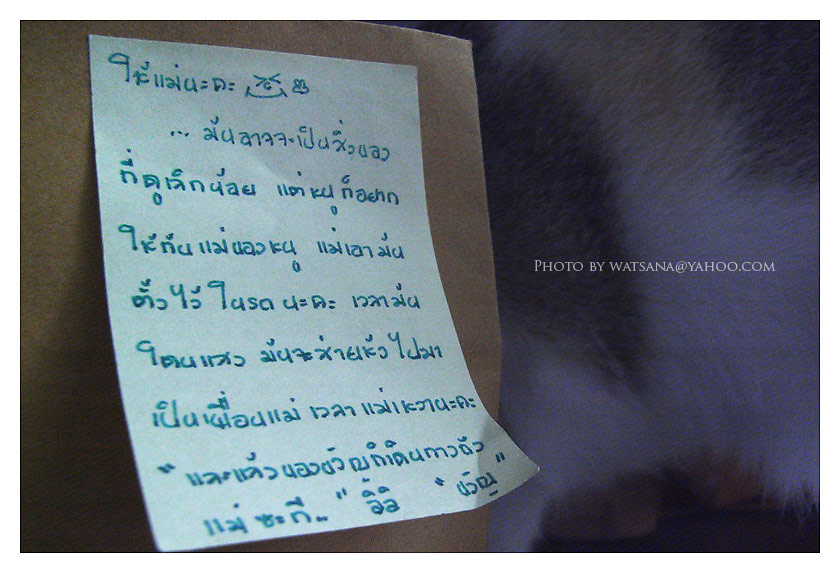 ให้แม่นะคะ
... มันอาจจะเป็นสิ่งของ
ที่ดูเล็กน้อย แต่หนูก็อยาก
ให้กับแม่ของหนู แม่เอามัน
ตั้งไว้ในรถนะคะ เวลามัน
โดนแสง มันจะส่ายหัวไปมา
เป็นเพื่อนแม่ เวลาแม่เหงานะคะ
“ และแล้วของขวัญก็เดินทางถึง
แม่ซะที.. ” อิอิ “ ขวัญ ”
PHOTO BY WATSANA@YAHOO.COM